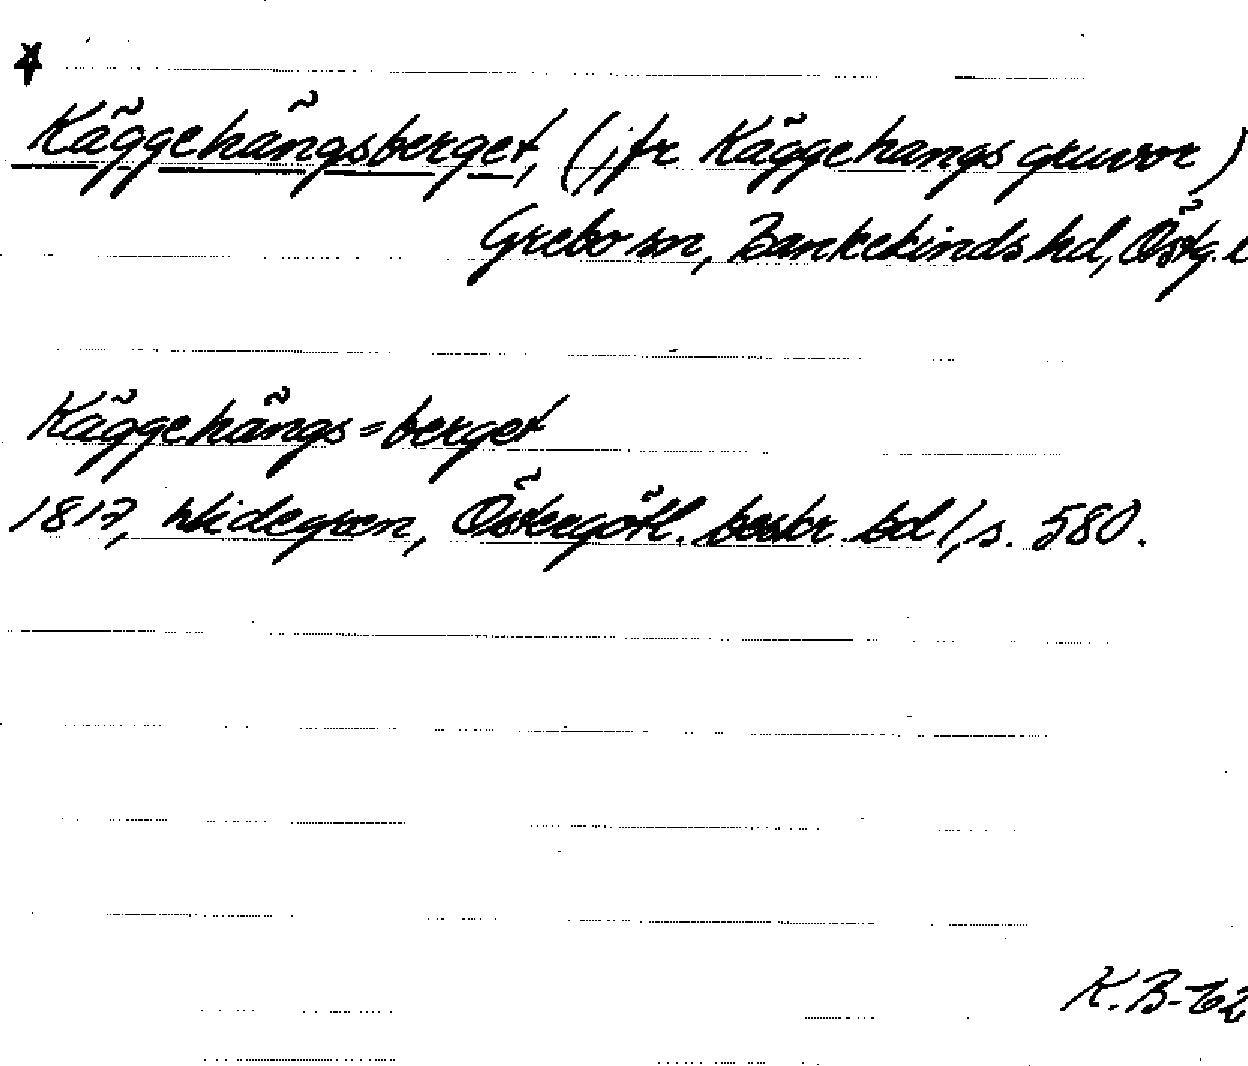 Käggehängsberget, (jfr Käggehangs gruvor)
Grebo sn, Bankekinds hd, Östg. l
Käggehängs=berget
1817, Widegren, Östergötl. beskr. bd 1, s. 580.
K.B-62